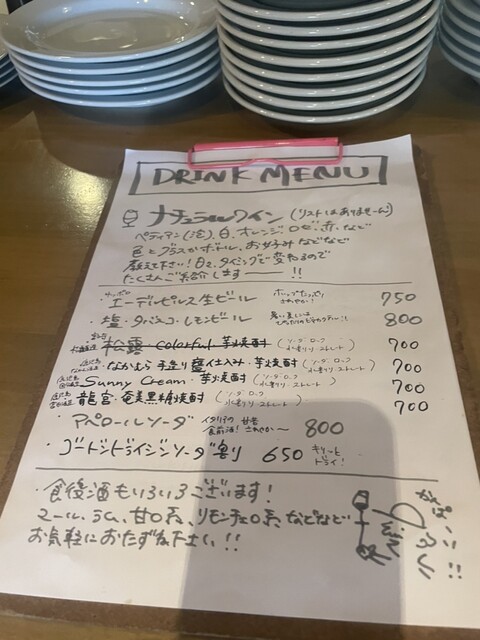 DRINK MENU
ナチュラルワイン (リストはありませーん)
ペティアン(泡)、白、オレンジ、ロゼ、赤、などなど
色とグラスかボトル、お好みなどなど
教えて下さい！日々、タイミングで変わるので
たくさんご紹介します――!!
サッポロ
・エーデルピルス生ビール ホップたっぷり さわやか！ 750
・塩・タバスコ・レモンビール 800
松露 Colorful 芋焼酎 (ソーダ ロック 水割り ストレート) 700
なかむら 手造り 甕仕込み・芋焼酎 (ソーダ ロック 水割り ストレート) 700
Sunny Cream・芋焼酎 (ソーダ ロック 水割り ストレート) 700
龍宮・奄美黒糖焼酎 (ソーダ ロック 水割り ストレート) 700
・アペロールソーダ イタリアの 食前酒！さわやか〜 800
・ゴードンドライジンソーダ割り 650 キリッと ドライ！
・食後酒もいろいろございます！
マール、ラム、甘口系、リモンチェロ系、などなど
お気軽におたずね下さい!!